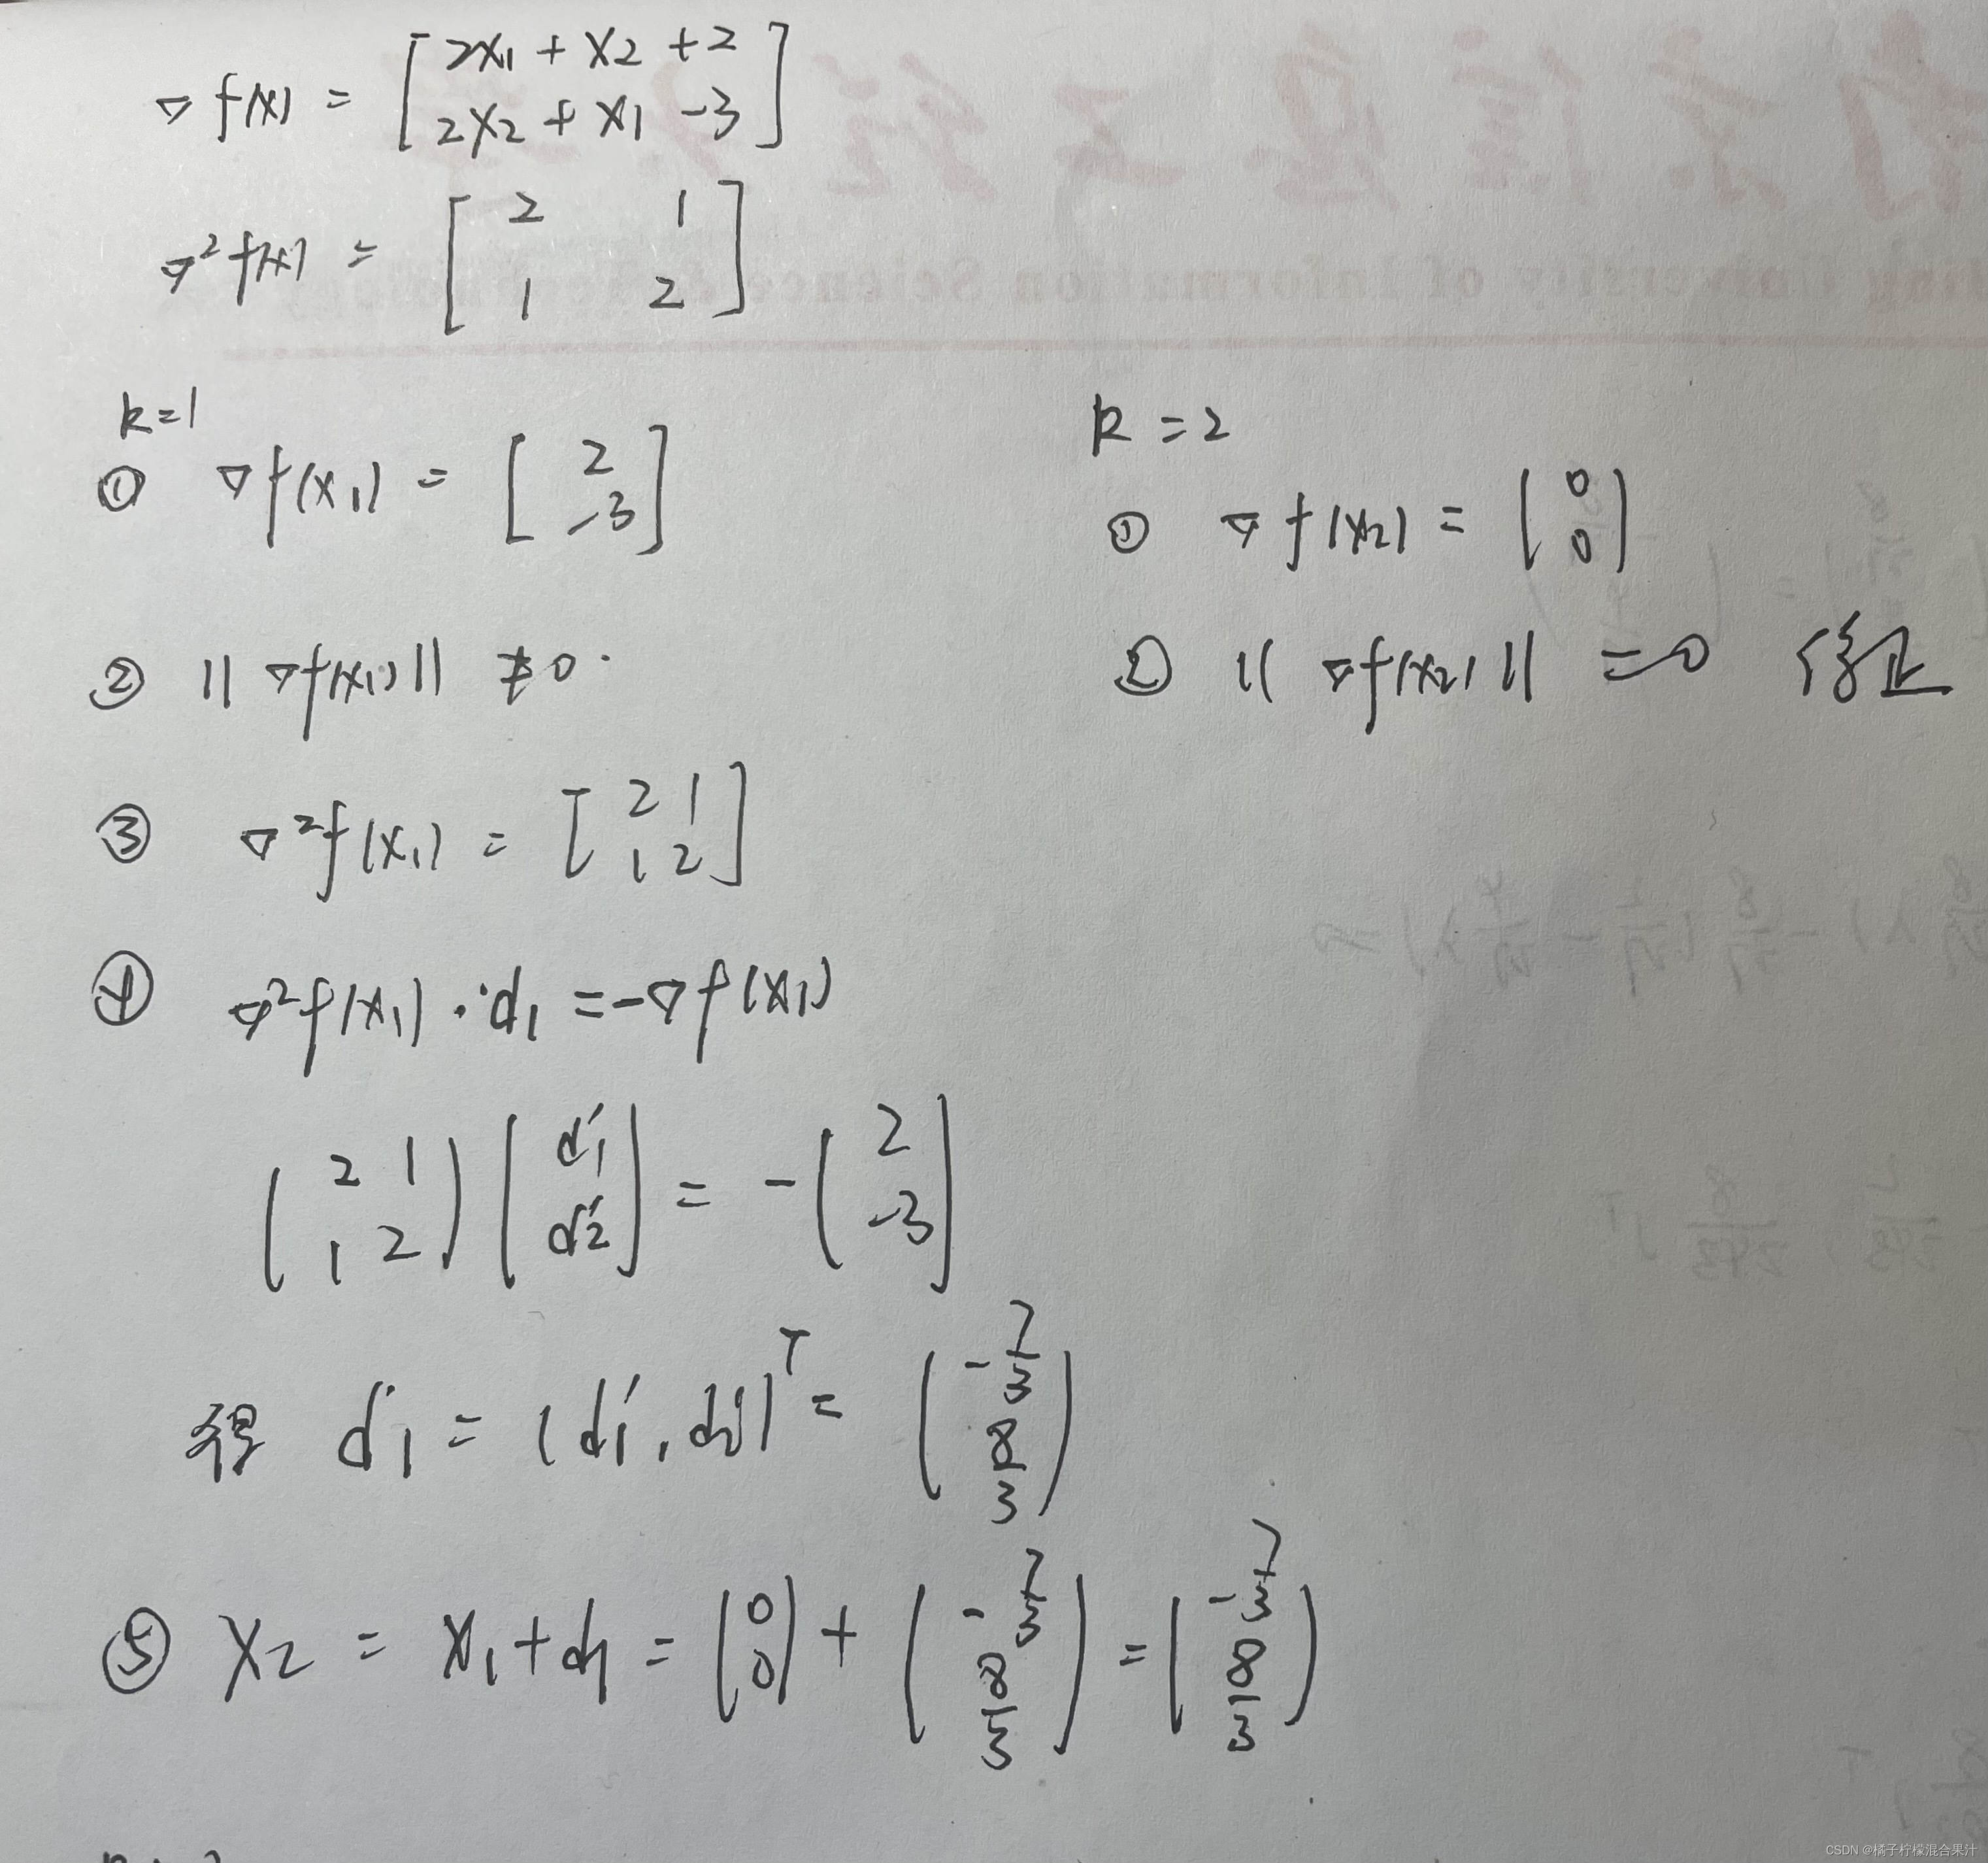 ∇f(x) = [2x₁ + x₂ + 2
2x₂ + x₁ - 3]
∇²f(x) = [2 1
1 2]
k=1
① ∇f(x₁) = [2
-3]
② ||∇f(x₁)|| ≠ 0.
③ ∇²f(x₁) = [2 1
1 2]
④ ∇²f(x₁)·d₁ = -∇f(x₁)
(2 1
1 2) (d₁'
d₂') = -(2
-3)
得 d₁ = (d₁', d₂')ᵀ = (-7/3
8/3)
⑤ x₂ = x₁ + d₁ = (0
0) + (-7/3
8/3) = (-7/3
8/3)
k=2
① ∇f(x₂) = (0
0)
② ||∇f(x₂)|| = 0 停止
CSDN @橘子柠檬混合果汁